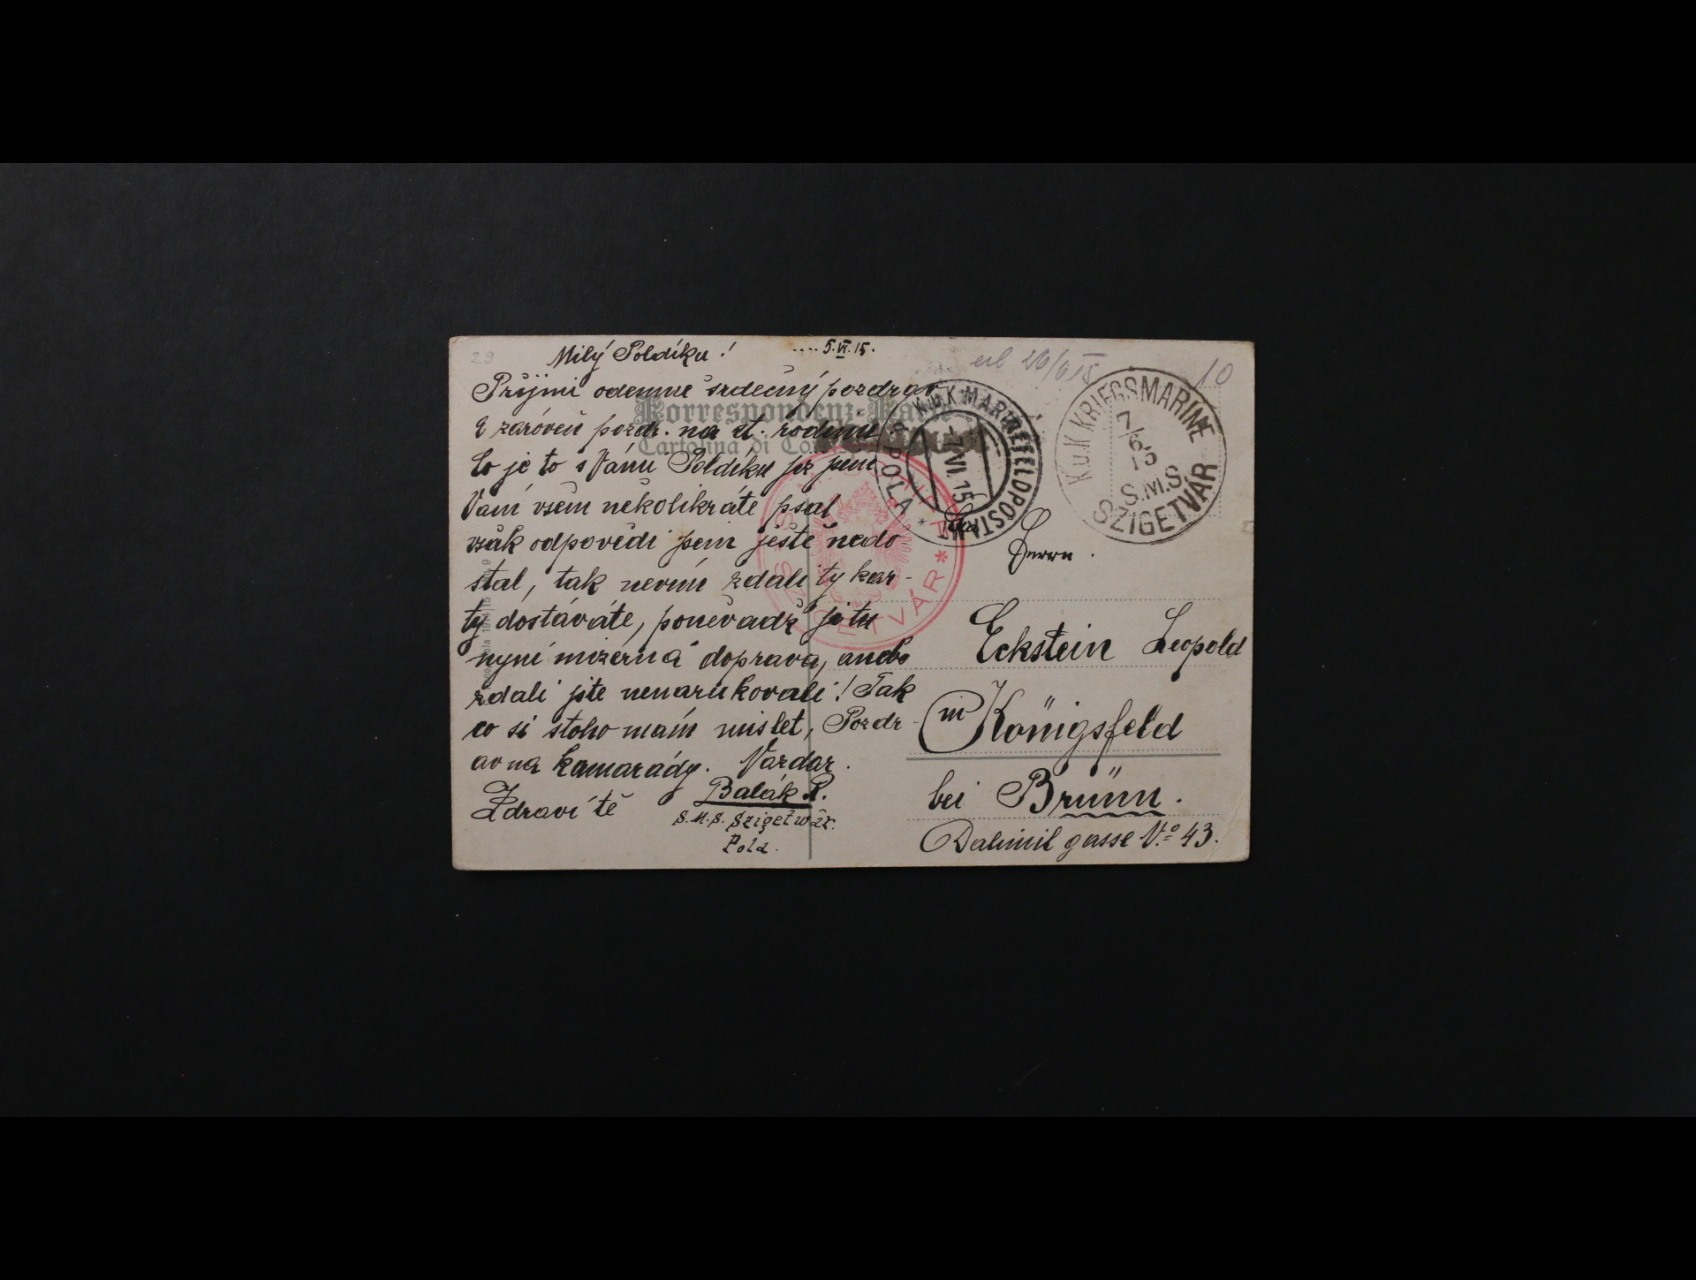 29
Milý Poldíku! .... 5.VI.15.
erl 26/6 15
10
Přijmi odemne srdečný pozdrav
Korrespondenz-Karte
Cartolina di
E zároveň pozdr. na ct. rodinu
Co je to s Vámi Poldíku já jsem
Vám všem několikráte psal
však odpovědi jsem ještě nedo
stal, tak nevím zdali ty kar-
ty dostáváte, poněvadž je tu
nyní mizerná doprava, anebo
zdali jste nenarukovali! Tak
co si stoho mám mislet, Pozdr-
av na kamarády. Nazdar.
Zdraví tě Balák R.
S.M.S. Szigetwár.
Pola.
K.u.K. MARINEFELDPOSTAMT
POLA
7 VI. 15
K.u.K KRIEGSMARINE
7/6 15
S.M.S.
SZIGETVÁR
S.M.S. SZIGETVÁR
Herrn.
Eckstein Leopold
in Königsfeld
bei Brünn.
Dalimil gasse No 43.